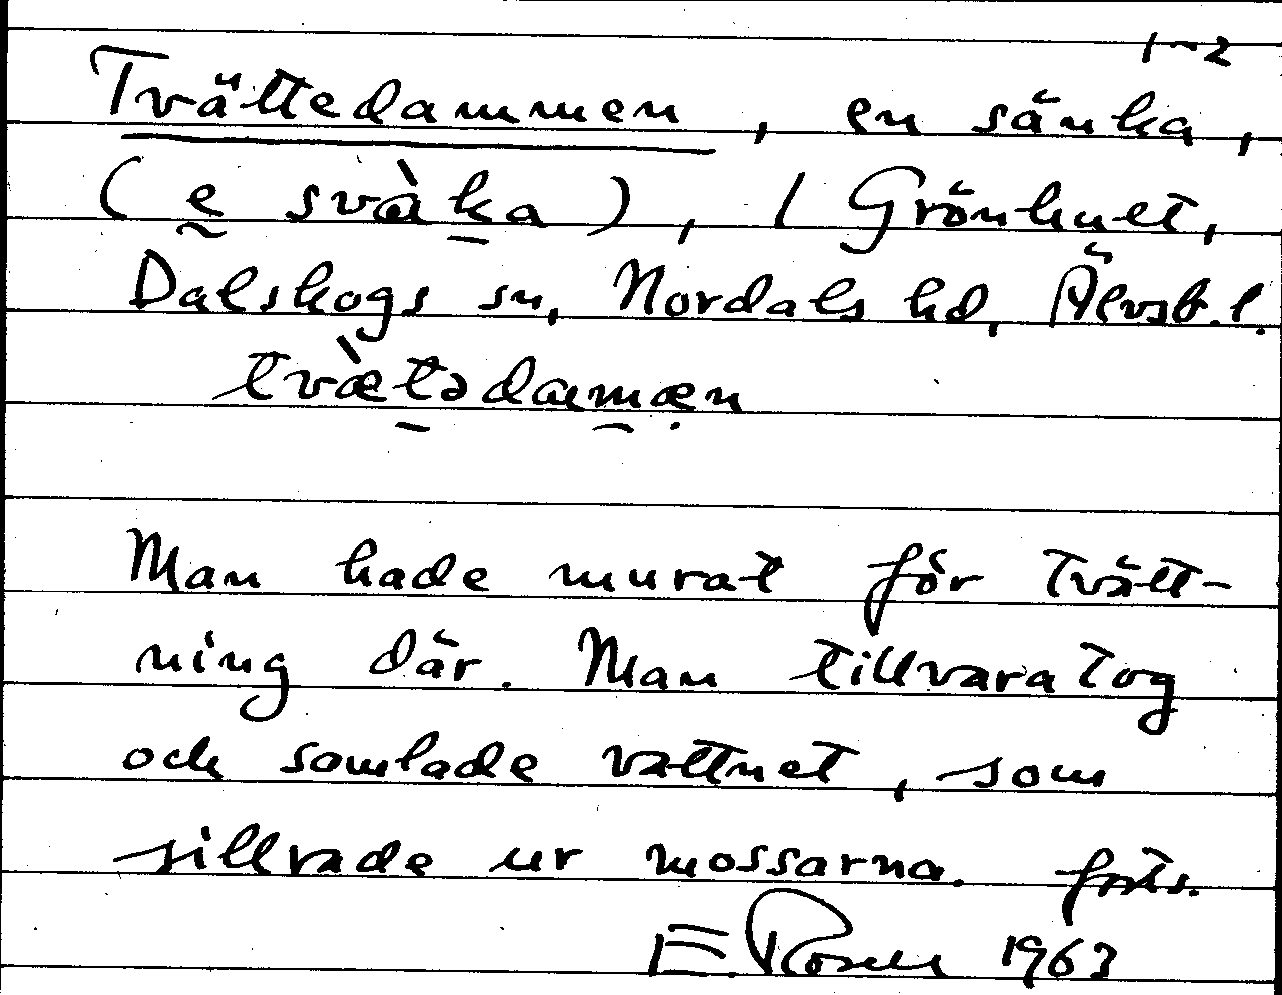 1-2
Tvättedammen, en sänka,
(e svàka), I Grönhuet,
Dalskogs sn, Nordals hd, Älvsb. l.
tvæ̀tədamæn
Man hade murat för tvätt-
ning där. Man tillvaratog
och samlade vattnet, som
sillrade ur mossarna. forts.
E. Rosell 1963